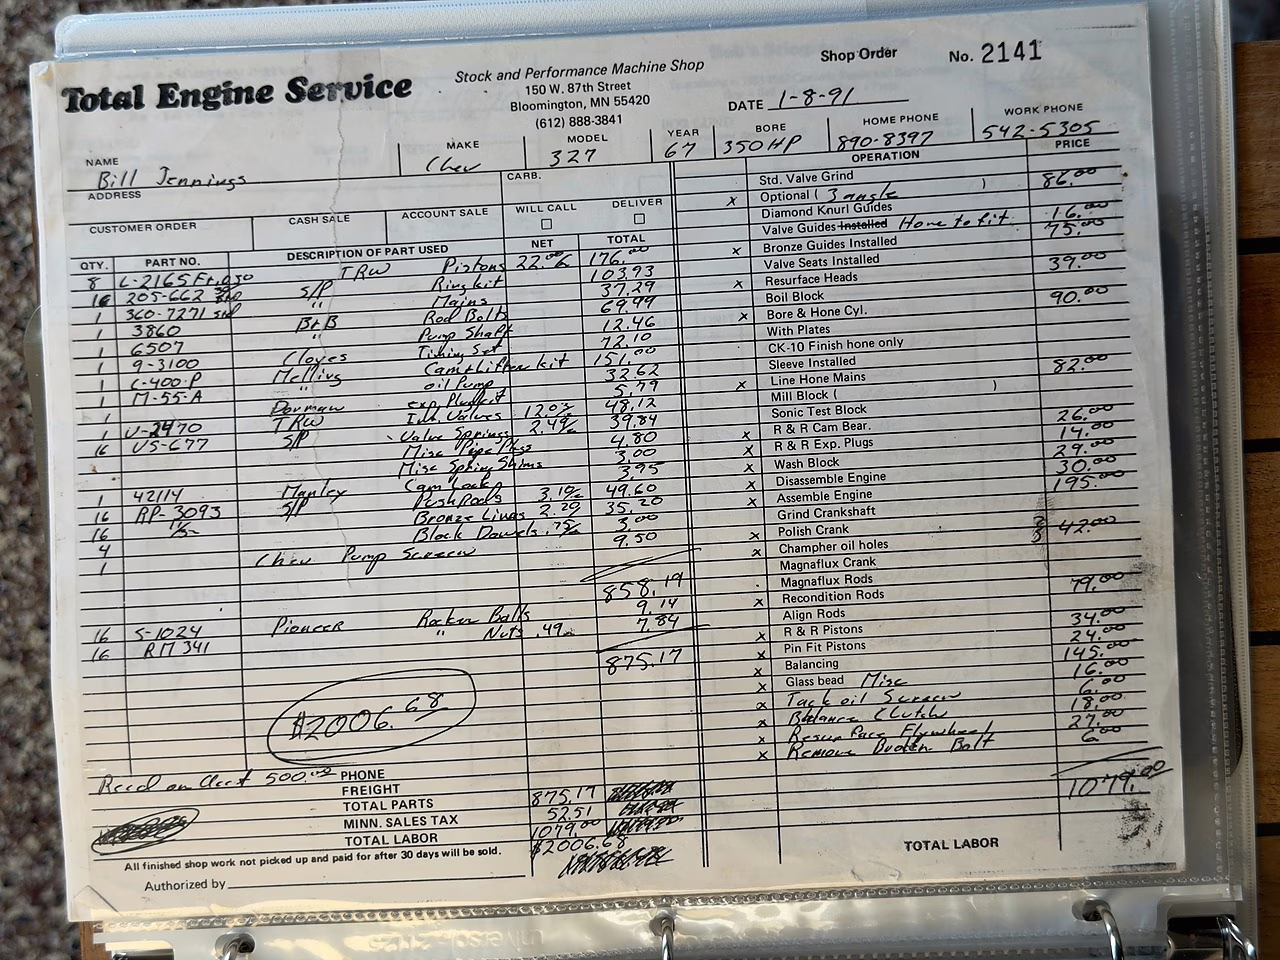 Total Engine Service
Stock and Performance Machine Shop
150 W. 87th Street
Bloomington, MN 55420
(612) 888-3841
Shop Order No. 2141
DATE 1-8-91
NAME Bill Jennings
MAKE Chev
MODEL 327
YEAR 67
BORE 350 HP
HOME PHONE 890-8397
WORK PHONE 542-5305
ADDRESS
CARB.
CUSTOMER ORDER CASH SALE ACCOUNT SALE WILL CALL DELIVER
QTY. PART NO. DESCRIPTION OF PART USED NET TOTAL
8 L-2165F TRW Pistons 22.00 176.00
205-662 S/P Ring kit 103.93
16 360-7271 std " Mains 37.29
1 3860 B+B Rod Bolts 69.99
1 6507 " Pump Shaft 12.46
1 9-3100 Cloyes Timing Set 72.10
1 C-400-P Melling Cam+Lifter kit 151.00
1 M-55-A " oil Pump 32.62
1 Dorman exp. Plug kit 5.79
1 V-2470 TRW Inh. Valves 12.03 48.12
16 VS-677 S/P Valve Springs 2.49 39.84
Misc Pipe Plugs 4.80
Misc Spring Shims 3.00
1 42114 Manley Cam Lock 3.95
16 RP-3093 S/P Push Rods 3.10 49.60
16 Bronze Lines 2.20 35.20
4 Block Dowels .75 3.00
1 Chev Pump Screw 9.50
858.19
16 S-1024 Pioneer Rocker Balls 9.14
16 RM 341 " Nuts .49 7.84
875.17
$2006.68
Recd on Acct 500.00
PHONE
FREIGHT
TOTAL PARTS 875.17
MINN. SALES TAX 52.51
TOTAL LABOR 1079.00
$2006.68
All finished shop work not picked up and paid for after 30 days will be sold.
Authorized by
OPERATION PRICE
Std. Valve Grind
x Optional ( 3 angle ) 86.00
Diamond Knurl Guides
Valve Guides Installed Hone to fit 16.00
x Bronze Guides Installed 75.00
Valve Seats Installed
x Resurface Heads 39.00
Boil Block
x Bore & Hone Cyl. 90.00
With Plates
CK-10 Finish hone only
Sleeve Installed
x Line Hone Mains 82.00
Mill Block ( )
Sonic Test Block
x R & R Cam Bear. 26.00
x R & R Exp. Plugs 14.00
x Wash Block 29.00
x Disassemble Engine 30.00
x Assemble Engine 195.00
Grind Crankshaft
x Polish Crank
x Champher oil holes 42.00
Magnaflux Crank
Magnaflux Rods
x Recondition Rods 79.00
Align Rods
x R & R Pistons 34.00
x Pin Fit Pistons 24.00
x Balancing 145.00
x Glass bead Misc 16.00
x Tack oil Screen 6.00
x Balance Clutch 18.00
x Resurface Flywheel 27.00
x Remove Broken Bolt 6.00
1079.00
TOTAL LABOR